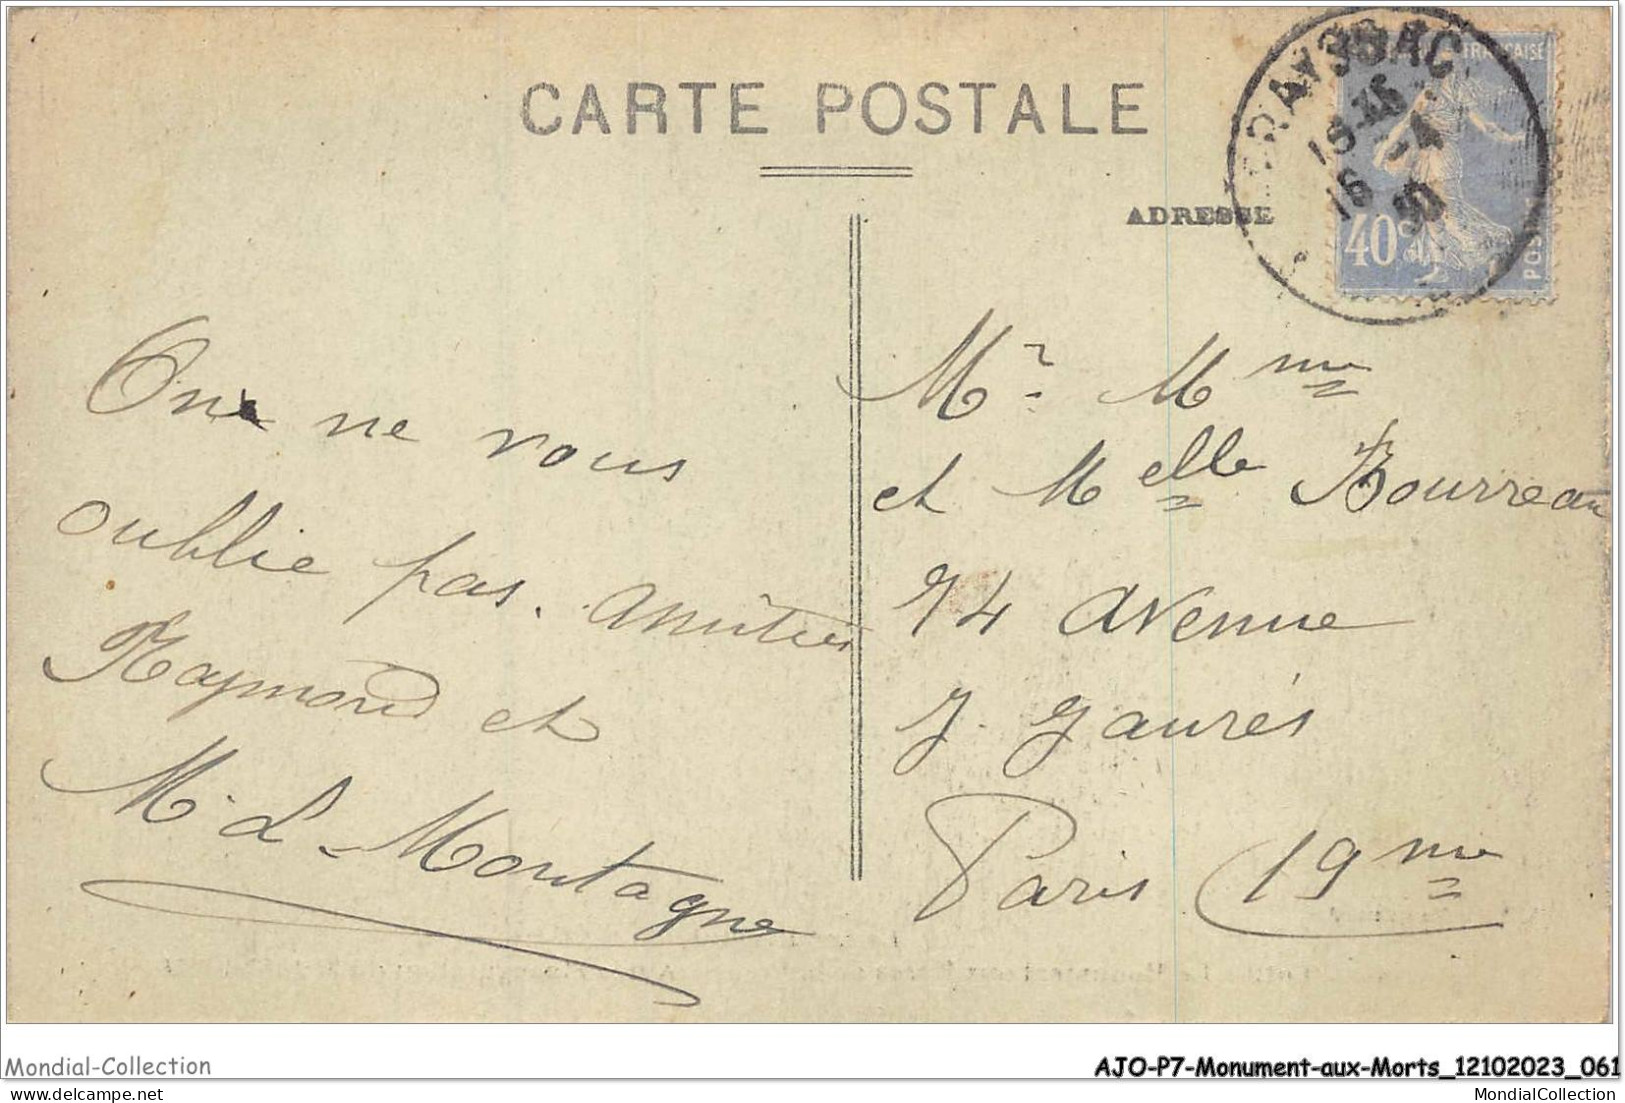 CARTE POSTALE
ADRESSE
40c
POS
On ne vous
oublie pas. Amitiés
Raymond et
M. L. Montagne
Mr. Mme
et Melle Bourreau
74 Avenue
J. Jaurés
Paris 19me
Mondial-Collection
AJO-P7-Monument-aux-Morts_12102023_061
delcampe.net
MondialCollection